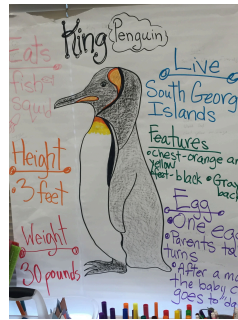 King Penguin
Eats
fish
squid
Height
• 3 feet
Weight
30 pounds
Live
South Georg
Islands
Features
• chest-orange an
yellow
feet-black • Gray
back
Egg
• One eg
• Parents ta
turns
• After a m
the baby c
goes to "da